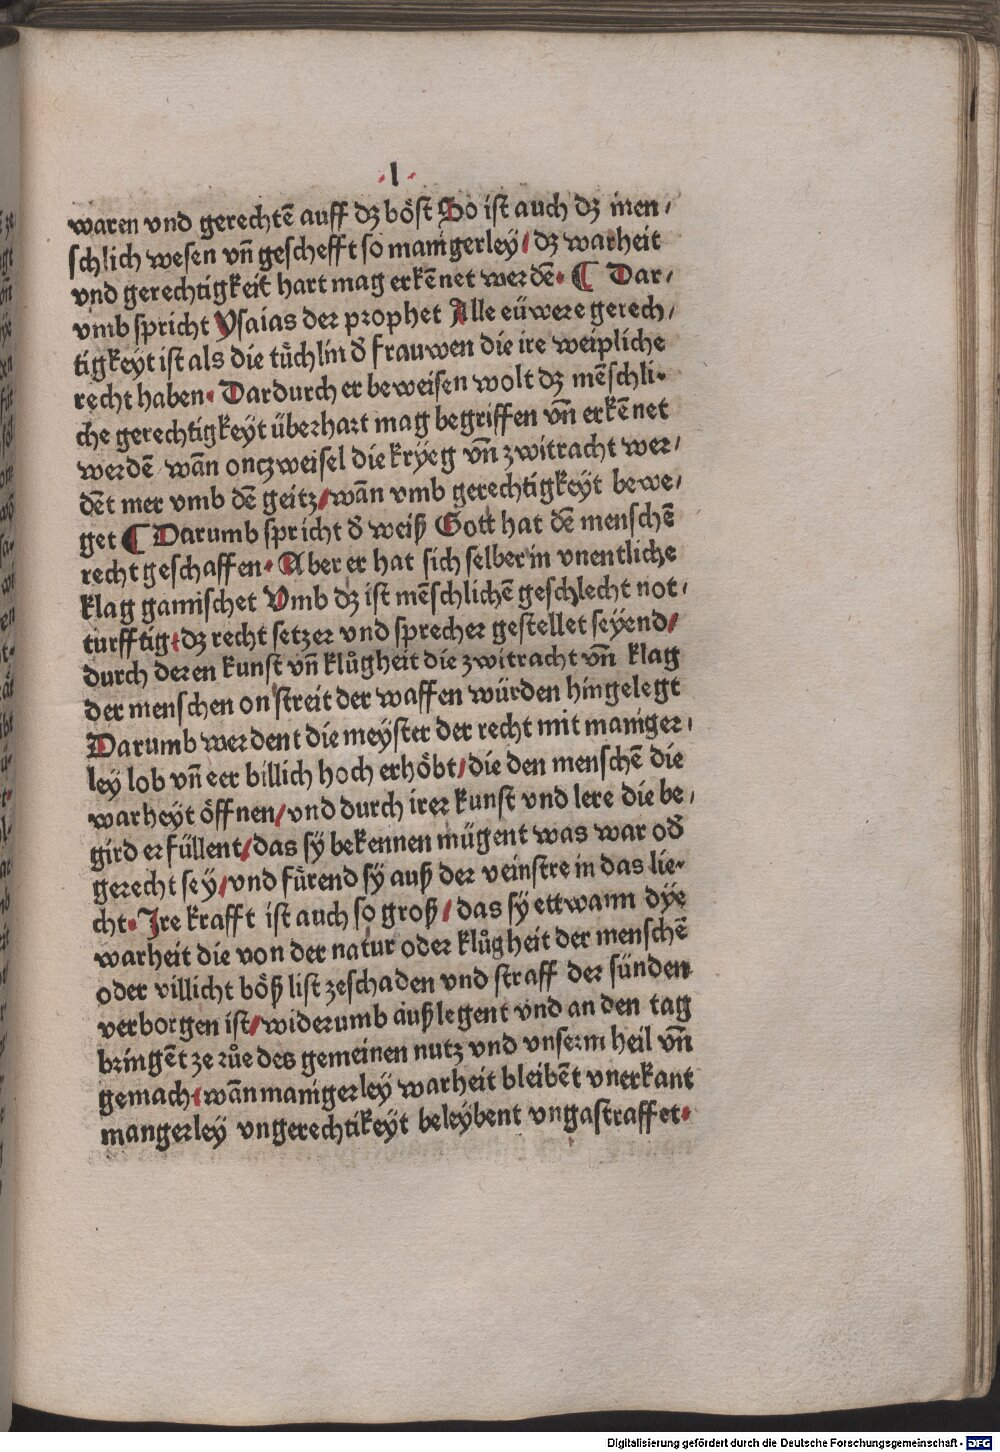 ·l·
waren vnd gerechtē auff dz bőst So ist auch dz men/
schlich wesen vn̄ geschefft so manigerley/ dz warheit
vnd gerechtigkeit hart mag erkēnet werdē· ¶ Dar/
vmb spricht Ysaias der prophet Alle eüwere gerech/
tigkeyt ist als die tüchlin d̄ frauwen die ire weipliche
recht haben· Dardurch er beweisen wolt dz mēschli·
che gerechtigkeyt überhart mag begriffen vn̄ erkēnet
werdē wān onczweifel die kryeg vn̄ zwitracht wer/
dēt mer vmb dē geitz/ wān vmb gerechtigkeyt bewe/
get ¶ Darumb spricht d̄ weiß Gott hat dē menschē
recht geschaffen· Aber er hat sich selber in vnentliche
klag gamischet Vmb dz ist mēschlichē geschlecht not/
turfftig/ dz recht setzer vnd sprecher gestellet seyend/
durch deren kunst vn̄ klůgheit die zwitracht vn̄ klag
der menschen on streit der waffen würden hingelegt
Darumb werdent die meyster der recht mit maniger/
ley lob vn̄ eer billich hoch erhöbt/ die den menschē die
warheyt öffnen/ vnd durch irer kunst vnd lere die be/
gird erfüllent/ das sy bekennen mügent was war od̄
gerecht sey/ vnd fürend sy auß der veinstre in das lie·
cht· Ire krafft ist auch so groß/ das sy ettwann dye
warheit die von der natur oder klůgheit der menschē
oder villicht böß list zeschaden vnd straff der sünden
verborgen ist/ widerumb außlegent vnd an den tag
bringēt ze růe des gemeinen nutz vnd vnserm heil vn̄
gemach/ wān manigerley warheit bleibēt vnerkant
mangerley vngerechtikeyt beleybent vngastraffet·
Digitalisierung gefördert durch die Deutsche Forschungsgemeinschaft - DFG